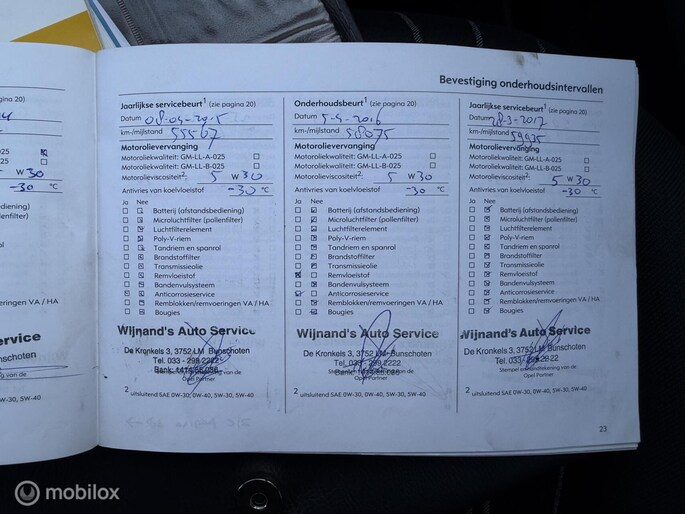 Bevestiging onderhoudsintervallen
gina 20)
025
W 30
-30 °C
diening)
nfilter)
eringen VA / HA
Service
nschoten
ng van de
Jaarlijkse servicebeurt1 (zie pagina 20)
Datum
km-/mijlstand 55567
Motorolievervanging
Motoroliekwaliteit: GM-LL-A-025
Motoroliekwaliteit: GM-LL-B-025
Motorolieviscositeit2: 5 W 30
Antivries van koelvloeistof -30 °C
Ja Nee
Batterij (afstandsbediening)
Microluchtfilter (pollenfilter)
Luchtfilterelement
Poly-V-riem
Tandriem en spanrol
Brandstoffilter
Transmissieolie
Remvloeistof
Bandenvulsysteem
Anticorrosieservice
Remblokken/remvoeringen VA / HA
Bougies
Wijnand's Auto Service
De Kronkels 3, 3752 LM Bunschoten
Tel. 033 - 299 2222
Opel Partner
2 uitsluitend SAE 0W-30, 0W-40, 5W-30, 5W-40
Onderhoudsbeurt1 (zie pagina 20)
Datum 5-4-2016
km-/mijlstand 58075
Motorolievervanging
Motoroliekwaliteit: GM-LL-A-025
Motoroliekwaliteit: GM-LL-B-025
Motorolieviscositeit2: 5 W 30
Antivries van koelvloeistof -30 °C
Ja Nee
Batterij (afstandsbediening)
Microluchtfilter (pollenfilter)
Luchtfilterelement
Poly-V-riem
Tandriem en spanrol
Brandstoffilter
Transmissieolie
Remvloeistof
Bandenvulsysteem
Anticorrosieservice
Remblokken/remvoeringen VA / HA
Bougies
Wijnand's Auto Service
De Kronkels 3, 3752 LM Bunschoten
Tel. 033 - 299 2222
Opel Partner
2 uitsluitend SAE 0W-30, 0W-40, 5W-30, 5W-40
Jaarlijkse servicebeurt1 (zie pagina 20)
Datum 28-3-2017
km-/mijlstand 59935
Motorolievervanging
Motoroliekwaliteit: GM-LL-A-025
Motoroliekwaliteit: GM-LL-B-025
Motorolieviscositeit2: 5 W 30
Antivries van koelvloeistof -30 °C
Ja Nee
Batterij (afstandsbediening)
Microluchtfilter (pollenfilter)
Luchtfilterelement
Poly-V-riem
Tandriem en spanrol
Brandstoffilter
Transmissieolie
Remvloeistof
Bandenvulsysteem
Anticorrosieservice
Remblokken/remvoeringen VA / HA
Bougies
Wijnand's Auto Service
De Kronkels 3, 3752 LM Bunschoten
Tel. 033 - 299 22 22
Stempel en handtekening van de
Opel Partner
2 uitsluitend SAE 0W-30, 0W-40, 5W-30, 5W-40
23
mobilox